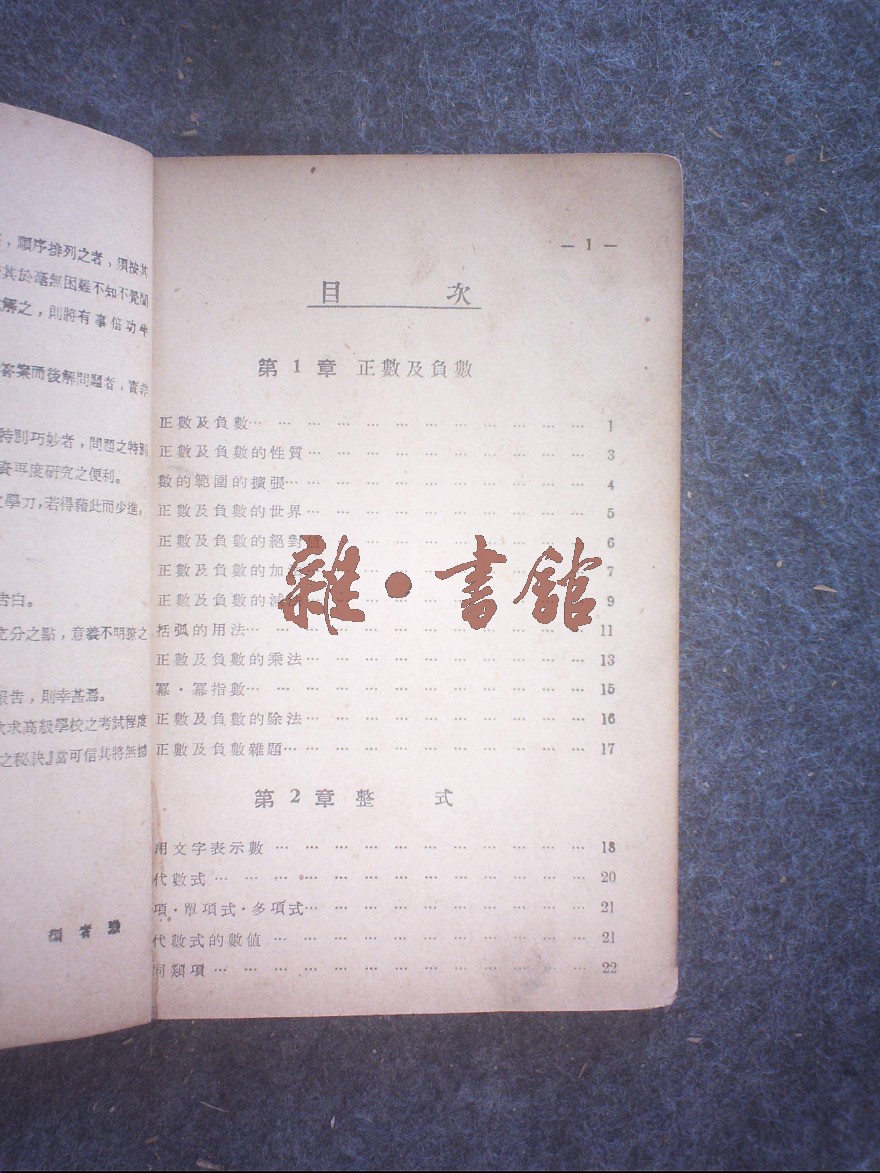 ，順序排列之者，須按其
其於毫無困難不知不覺間
解之，則將有事倍功半
答案而後解問題者，實非
特別巧妙者，問題之特別
資再度研究之便利。
學刀，若得藉此而少進，
告白。
充分之點，意義不明瞭之
報告，則幸甚焉。
求高級學校之考試程度
之秘訣』當可信其將無憾
者
— 1 —
目 次
第 1 章 正數及負數
正數及負數… … … … … … … … … … … … 1
正數及負數的性質… … … … … … … … … … 3
數的範圍的擴張… … … … … … … … … … … 4
正數及負數的世界… … … … … … … … … … 5
正數及負數的絕對值 … … … … … … … … … 6
正數及負數的加 … … … … … … … … … … 7
正數及負數的減 … … … … … … … … … … 9
括弧的用法… … … … … … … … … … … … 11
正數及負數的乘法… … … … … … … … … … 13
冪・冪指數… … … … … … … … … … … … 15
正數及負數的除法… … … … … … … … … … 16
正數及負數雜題… … … … … … … … … … … 17
第 2 章 整 式
用文字表示數 … … … … … … … … … … … 18
代數式… … … … … … … … … … … … … 20
項・單項式・多項式… … … … … … … … … … 21
代數式的數值 … … … … … … … … … … … 21
同類項 … … … … … … … … … … … … … 22
雜・書館